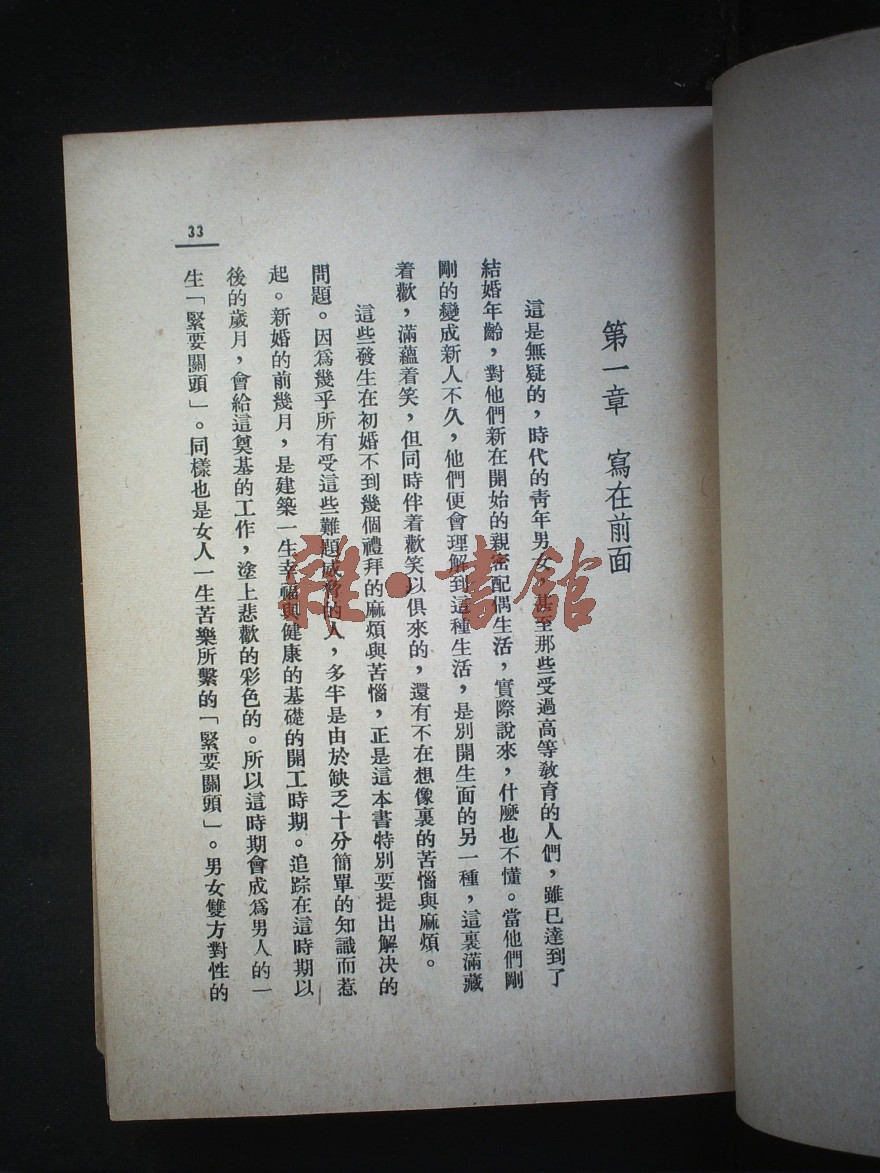 第一章 寫在前面
這是無疑的，時代的青年男女，甚至那些受過高等教育的人們，雖已達到了
結婚年齡，對他們新在開始的親密配偶生活，實際說來，什麼也不懂。當他們剛
剛的變成新人不久，他們便會理解到這種生活，是別開生面的另一種，這裏滿藏
着歡，滿蘊着笑，但同時伴着歡笑以俱來的，還有不在想像裏的苦惱與麻煩。
這些發生在初婚不到幾個禮拜的麻煩與苦惱，正是這本書特別要提出解決的
問題。因爲幾乎所有受這些難題威脅的人，多半是由於缺乏十分簡單的知識而惹
起。新婚的前幾月，是建築一生幸福與健康的基礎的開工時期。追踪在這時期以
後的歲月，會給這奠基的工作，塗上悲歡的彩色的。所以這時期會成爲男人的一
生「緊要關頭」。同樣也是女人一生苦樂所繫的「緊要關頭」。男女雙方對性的
33
雜·書館